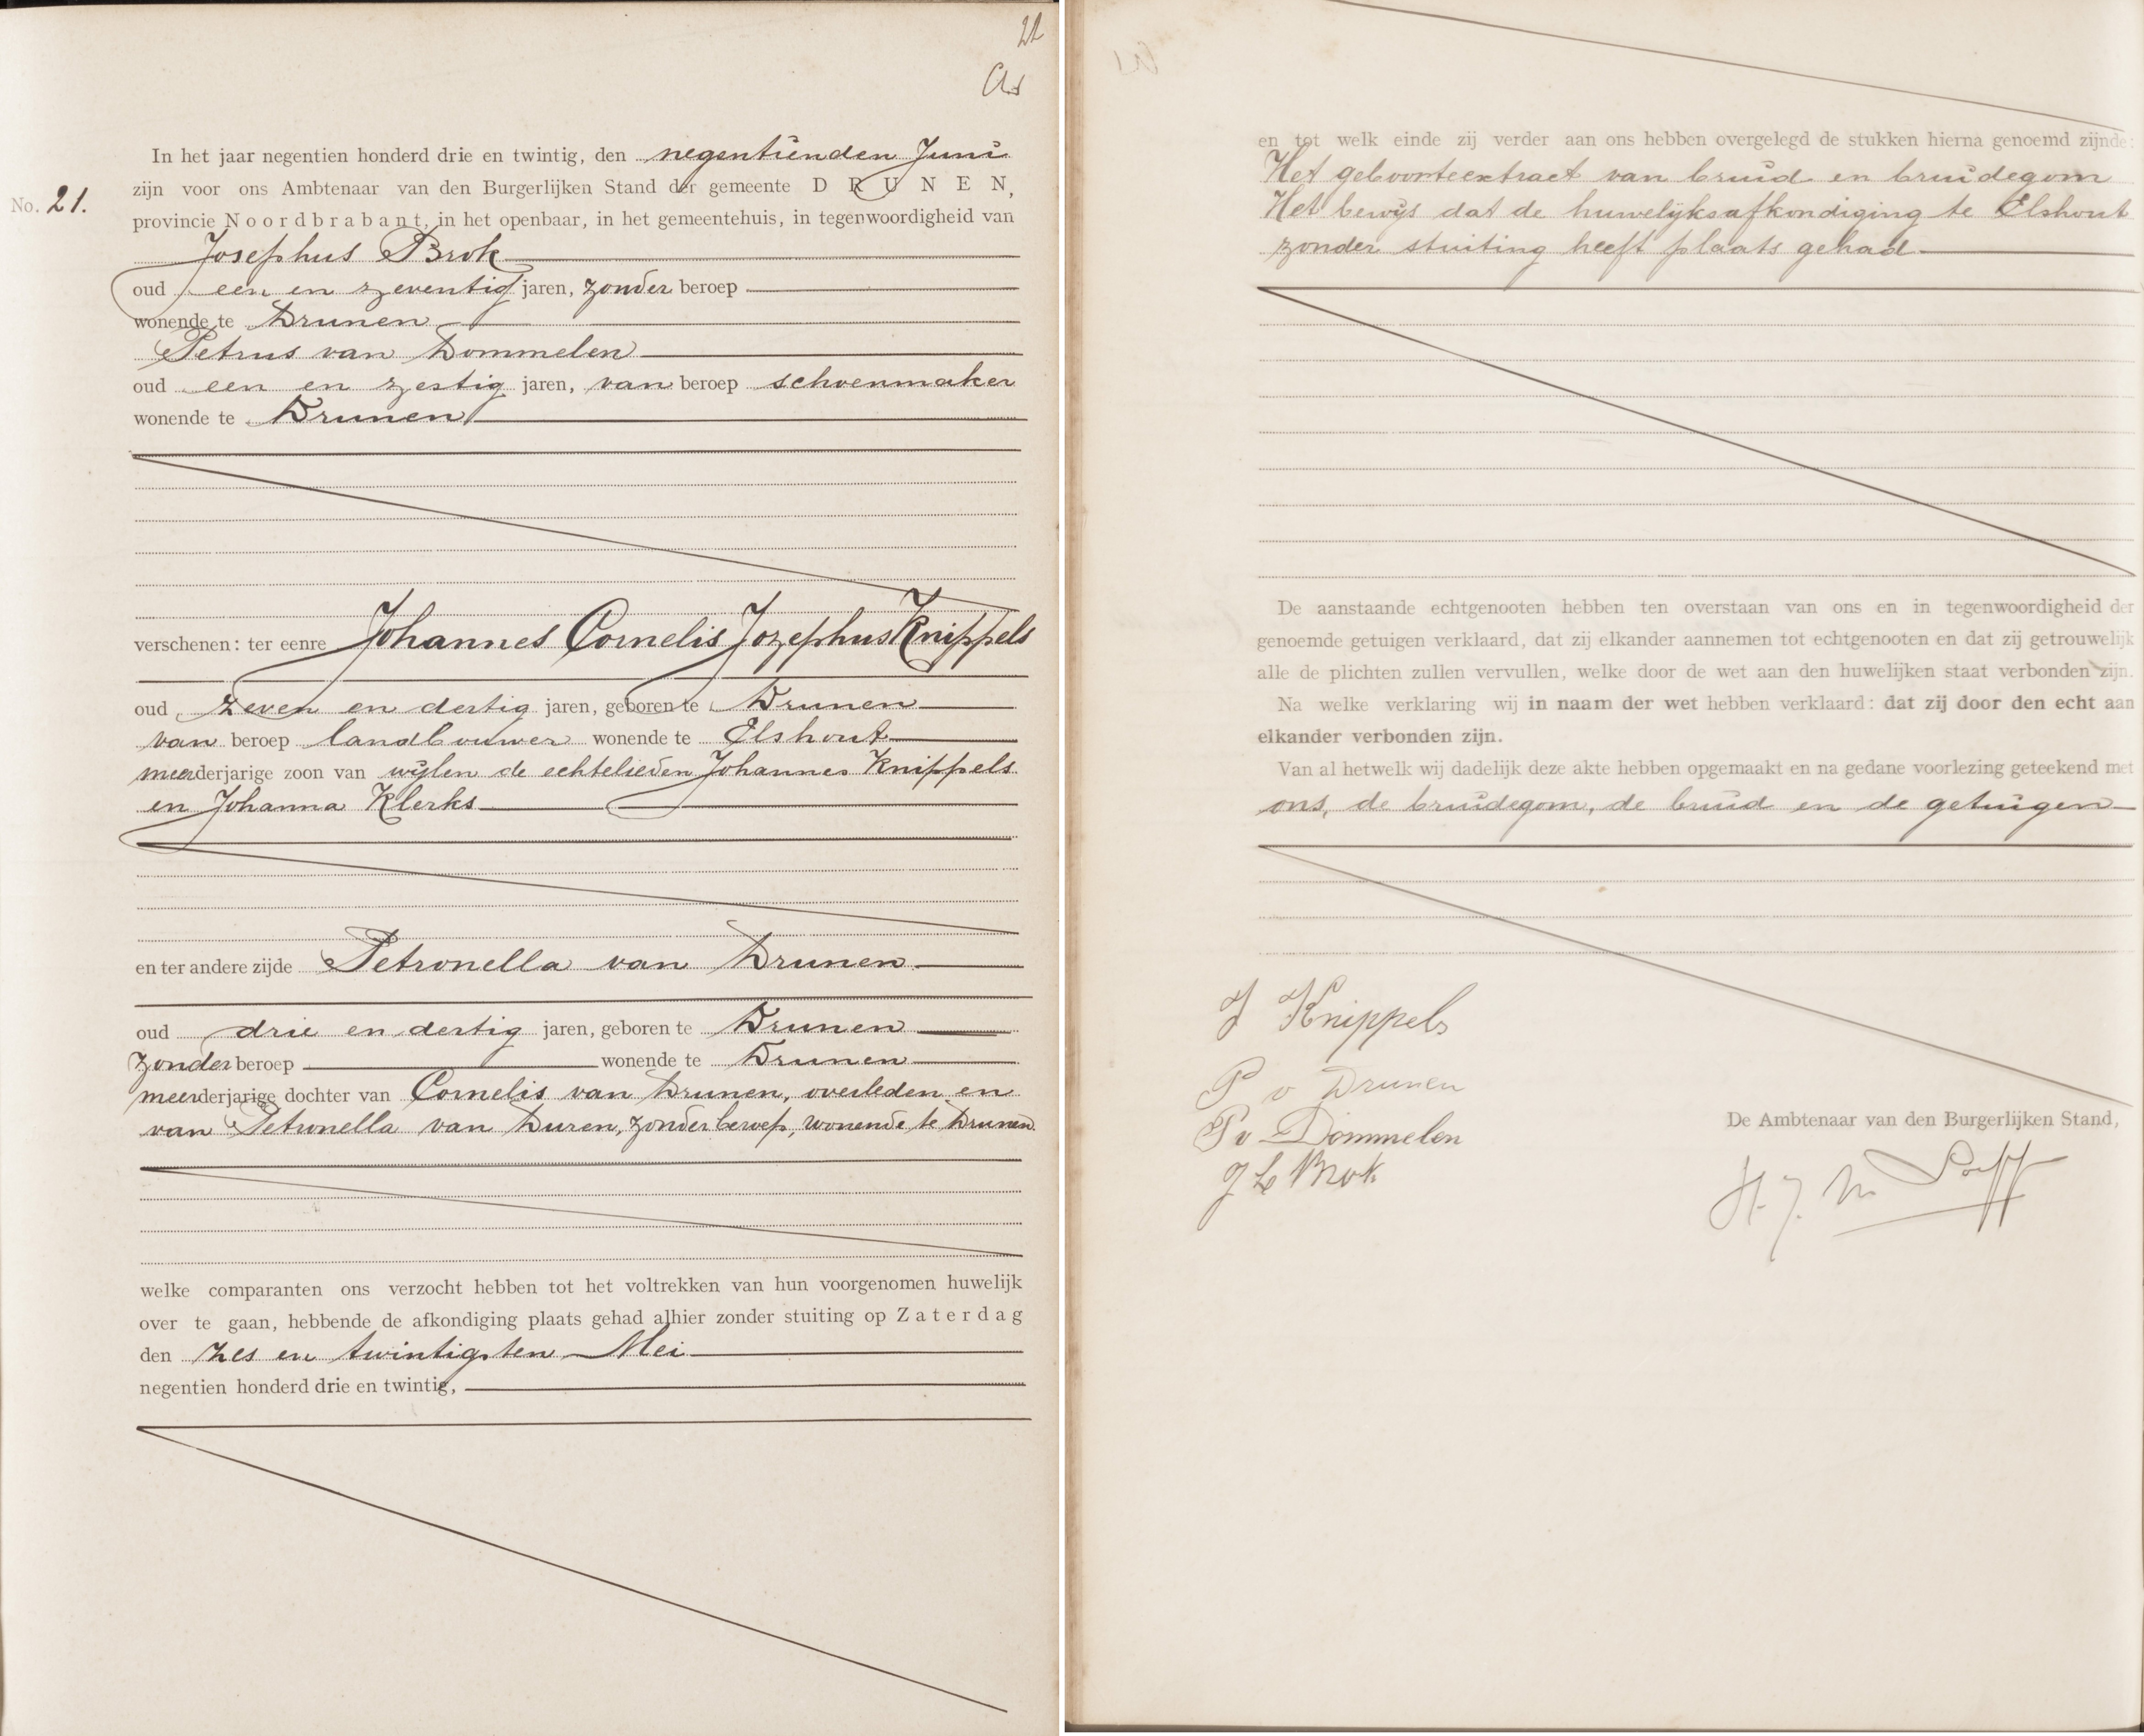 21
No. 21.
In het jaar negentien honderd drie en twintig, den negentienden Juni
zijn voor ons Ambtenaar van den Burgerlijken Stand der gemeente DRUNEN,
provincie Noordbrabant, in het openbaar, in het gemeentehuis, in tegenwoordigheid van
Josephus Brok
oud een en zeventig jaren, zonder beroep
wonende te Drunen
Petrus van Dommelen
oud een en zestig jaren, van beroep schoenmaker
wonende te Drunen
verschenen: ter eenre Johannes Cornelis Jozephus Knippels
oud zeven en dertig jaren, geboren te Drunen
van beroep landbouwer wonende te Elshout
meerderjarige zoon van wijlen de echtelieden Johannes Knippels
en Johanna Klerks
en ter andere zijde Petronella van Drunen
oud drie en dertig jaren, geboren te Drunen
zonder beroep wonende te Drunen
meerderjarige dochter van Cornelis van Drunen, overleden en
van Petronella van Duren, zonder beroep, wonende te Drunen
welke comparanten ons verzocht hebben tot het voltrekken van hun voorgenomen huwelijk
over te gaan, hebbende de afkondiging plaats gehad alhier zonder stuiting op Zaterdag
den zes en twintigsten Mei
negentien honderd drie en twintig,
en tot welk einde zij verder aan ons hebben overgelegd de stukken hierna genoemd zijnde:
Het geboorteextract van bruid en bruidegom
Het bewijs dat de huwelijksafkondiging te Elshout
zonder stuiting heeft plaats gehad
De aanstaande echtgenooten hebben ten overstaan van ons en in tegenwoordigheid der
genoemde getuigen verklaard, dat zij elkander aannemen tot echtgenooten en dat zij getrouwelijk
alle de plichten zullen vervullen, welke door de wet aan den huwelijken staat verbonden zijn.
Na welke verklaring wij in naam der wet hebben verklaard: dat zij door den echt aan
elkander verbonden zijn.
Van al hetwelk wij dadelijk deze akte hebben opgemaakt en na gedane voorlezing geteekend met
ons, de bruidegom, de bruid en de getuigen
J Knippels
P v Drunen
P v Dommelen
De Ambtenaar van den Burgerlijken Stand,
Brok